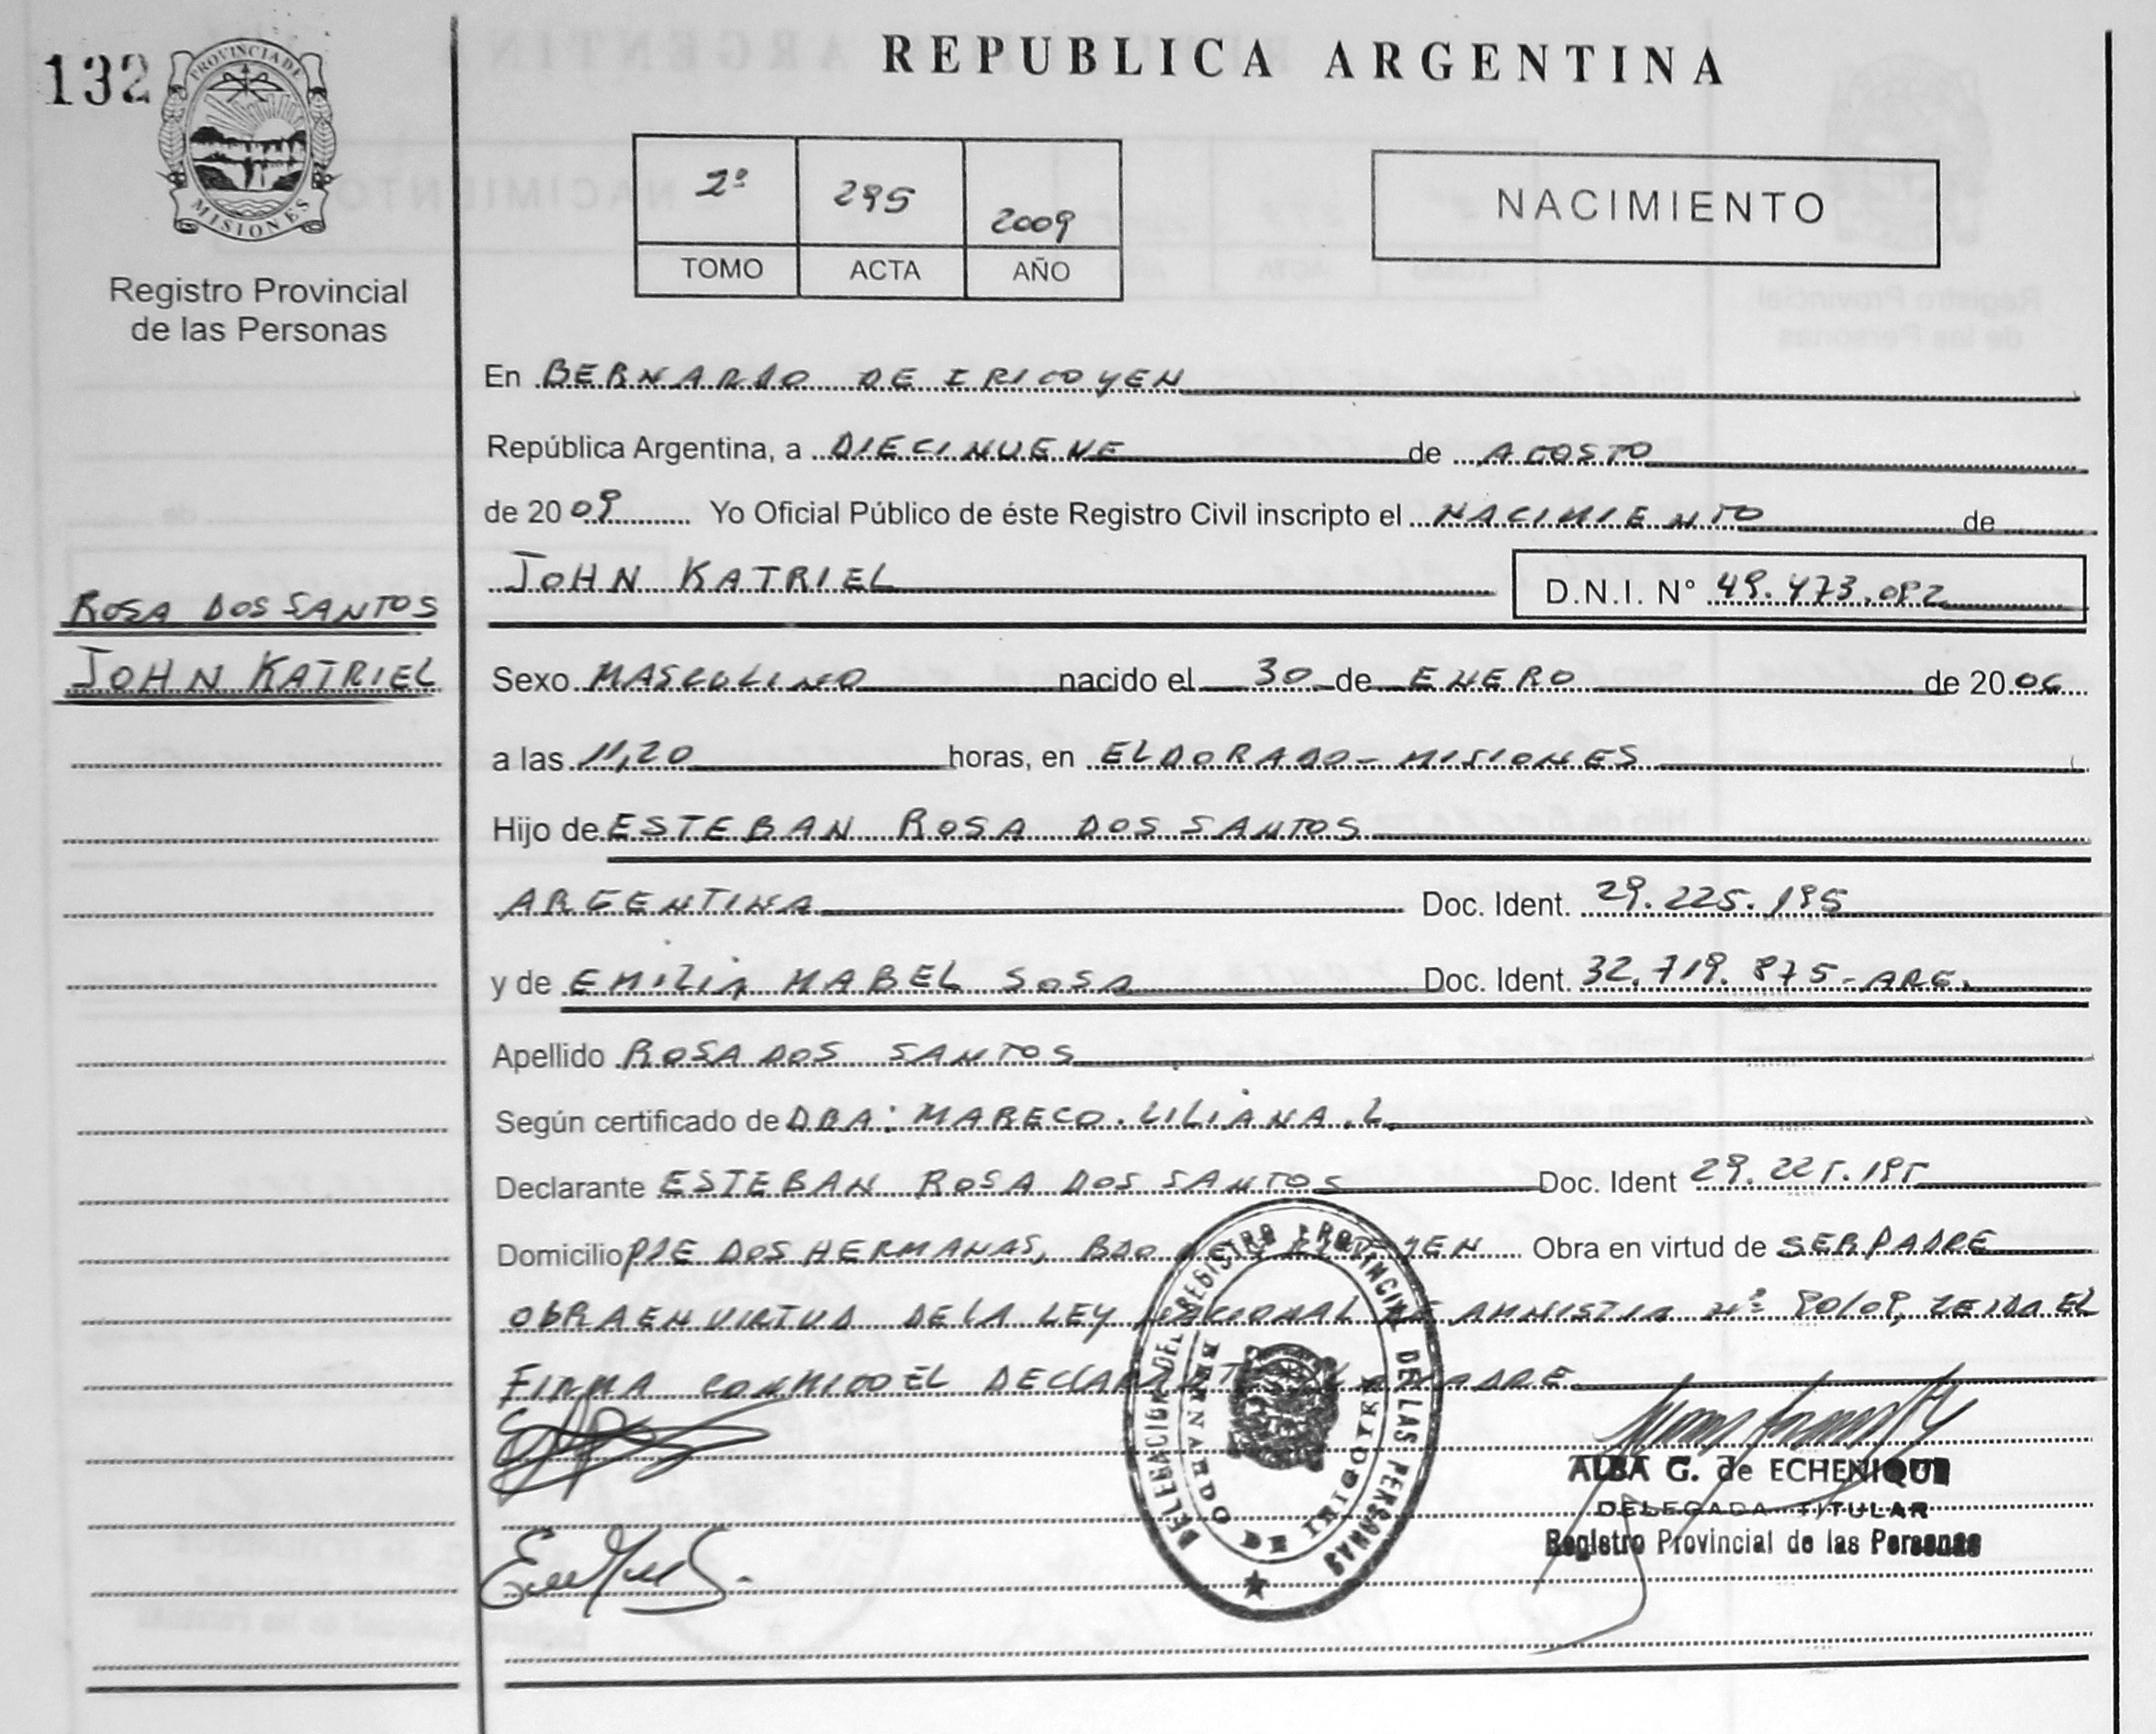 132
PROVINCIA DE
MISIONES
Registro Provincial
de las Personas
REPUBLICA ARGENTINA
2º 295 2009
TOMO ACTA AÑO
NACIMIENTO
En BERNARDO DE IRIGOYEN
República Argentina, a DIECINUEVE de AGOSTO
de 2009 Yo Oficial Público de éste Registro Civil inscripto el NACIMIENTO de
JOHN KATRIEL D.N.I. N° 49.473.092
ROSA DOS SANTOS
JOHN KATRIEL
Sexo MASCULINO nacido el 30 de ENERO de 2006
a las 11,20 horas, en ELDORADO - MISIONES
Hijo de ESTEBAN ROSA DOS SANTOS
ARGENTINA Doc. Ident. 29.225.195
y de EMILIA MABEL SOSA Doc. Ident. 32.719.875-ARG.
Apellido ROSA DOS SANTOS
Según certificado de DRA: MARECO. LILIANA. L.
Declarante ESTEBAN ROSA DOS SANTOS Doc. Ident 29.225.195
Domicilio PJE DOS HERMANAS, BDO DE IRIGOYEN Obra en virtud de SER PADRE
OBRA EN VIRTUD DE LA LEY NACIONAL DE AMNISTIA Nº LEIDA EL
FIRMA CONMIGO EL DECLARANTE Y LA MADRE
DELEGACION DEL REGISTRO PROVINCIAL DE LAS PERSONAS
BERNARDO DE IRIGOYEN
ALBA G. de ECHENIQUE
DELEGADA TITULAR
Registro Provincial de las Personas